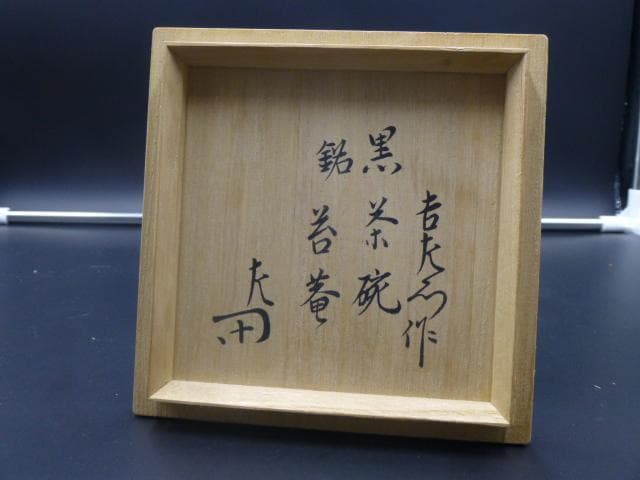 吉左衛門作
黒茶碗
銘 苔菴
左